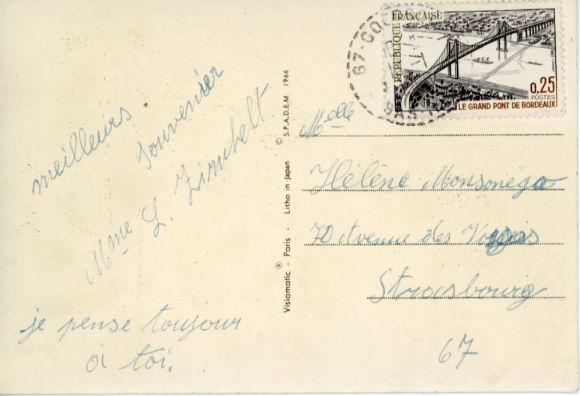 meilleurs
souvenier
Mme L. Zimbelt
je pense toujour
à toi.
Visiomatic - Paris - Litho in Japan © S.P.A.D.E.M. 1966
RÉPUBLIQUE FRANÇAISE
0,25
POSTES
LE GRAND PONT DE BORDEAUX
67
Melle
Hélène Monsonégo
70 Avenue des Vosges
Strasbourg
67